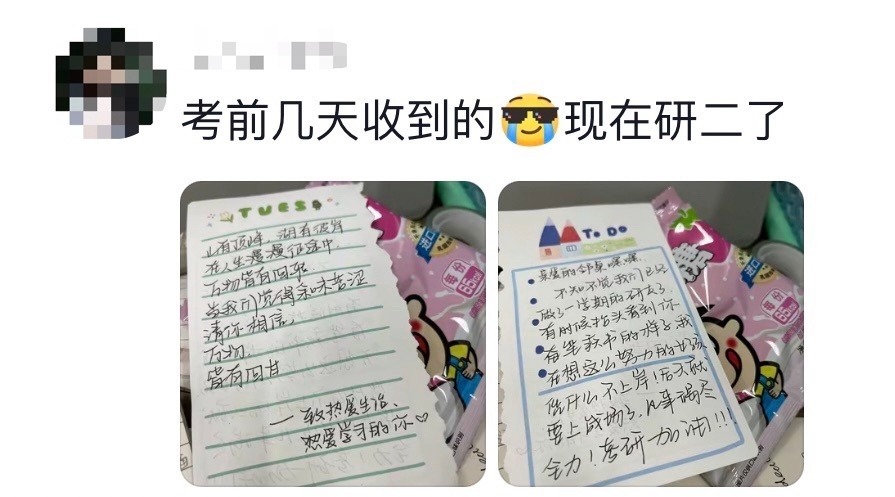 考前几天收到的😭现在研二了
TUES
山有顶峰,湖有彼岸
在人生漫漫征途中,
万物皆有回转
当我们觉得余味苦涩
请你相信,
万物
皆有回甘
——致热爱生活、
热爱学习的你♡
TO DO
亲爱的邻桌嘿嘿,
不知不觉我们已经
做了一学期的研友了
有时候抬头看到你
奋笔疾书的样子我
在想这么努力的女孩
凭什么不上岸!后天就
要上战场了,凡事竭尽
全力!考研加油!!!
进口
每份